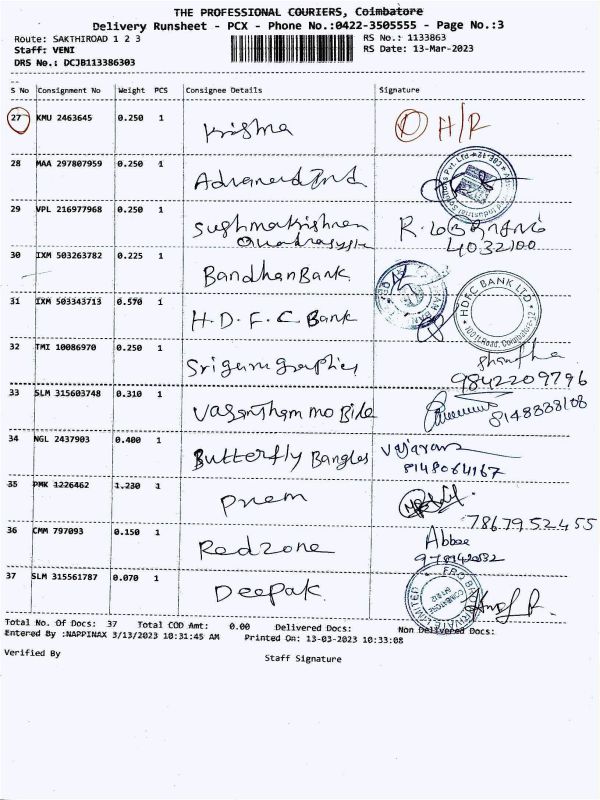 THE PROFESSIONAL COURIERS, Coimbatore
Delivery Runsheet - PCX - Phone No.:0422-3505555 - Page No.:3
Route: SAKTHIROAD 1 2 3 RS No.: 1133863
Staff: VENI RS Date: 13-Mar-2023
DRS No.: DCJB113386303
S No Consignment No Weight PCS Consignee Details Signature
27 KMU 2463645 0.250 1 Krishna H/R
28 MAA 297807959 0.250 1 Advanced Ind
29 VPL 216977968 0.250 1 Sughmakrishnan R.
4032100
30 IXM 503263782 0.225 1 Bandhan Bank
31 IXM 503343713 0.570 1 H.D.F.C Bank HDFC BANK LTD
32 TMI 10086970 0.250 1 Sriguru graphics Shantha
9842209796
33 SLM 315603748 0.310 1 Vasantham mobile 8148888108
34 NGL 2437903 0.400 1 Butterfly Bangles
8148064167
35 PMK 1226462 1.230 1 Prem
7867952455
36 CMM 797093 0.150 1 Redzone Abbas
37 SLM 315561787 0.070 1 Deepak
Total No. Of Docs: 37 Total COD Amt: 0.00 Delivered Docs: Non Delivered Docs:
Entered By :NAPPINAX 3/13/2023 10:31:45 AM Printed On: 13-03-2023 10:33:08
Verified By Staff Signature